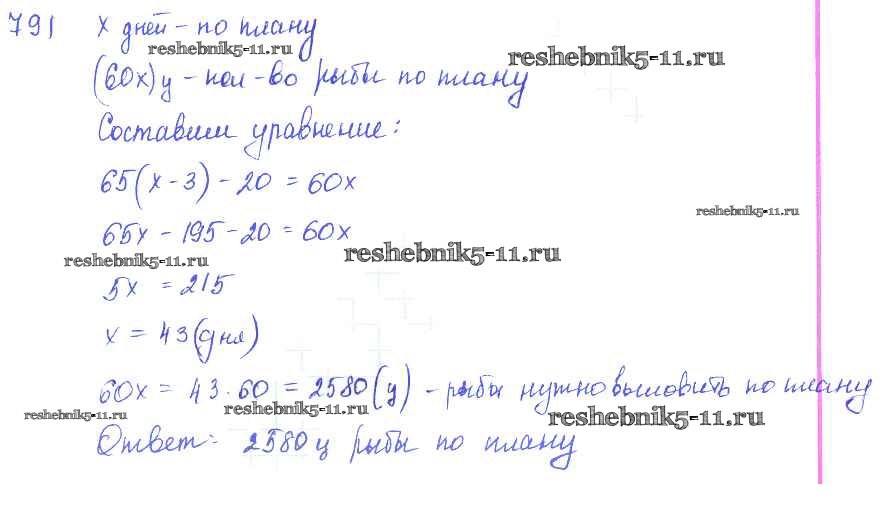 791 х дней - по плану
reshebnik5-11.ru
reshebnik5-11.ru
(60х)ц - кол-во рыбы по плану
Составим уравнение:
65(х-3) - 20 = 60х
reshebnik5-11.ru
65х - 195 - 20 = 60х
reshebnik5-11.ru
reshebnik5-11.ru
5х = 215
х = 43 (дня)
60х = 43 · 60 = 2580 (ц) - рыбы нужно выловить по плану
reshebnik5-11.ru
reshebnik5-11.ru
reshebnik5-11.ru
Ответ: 2580 ц рыбы по плану